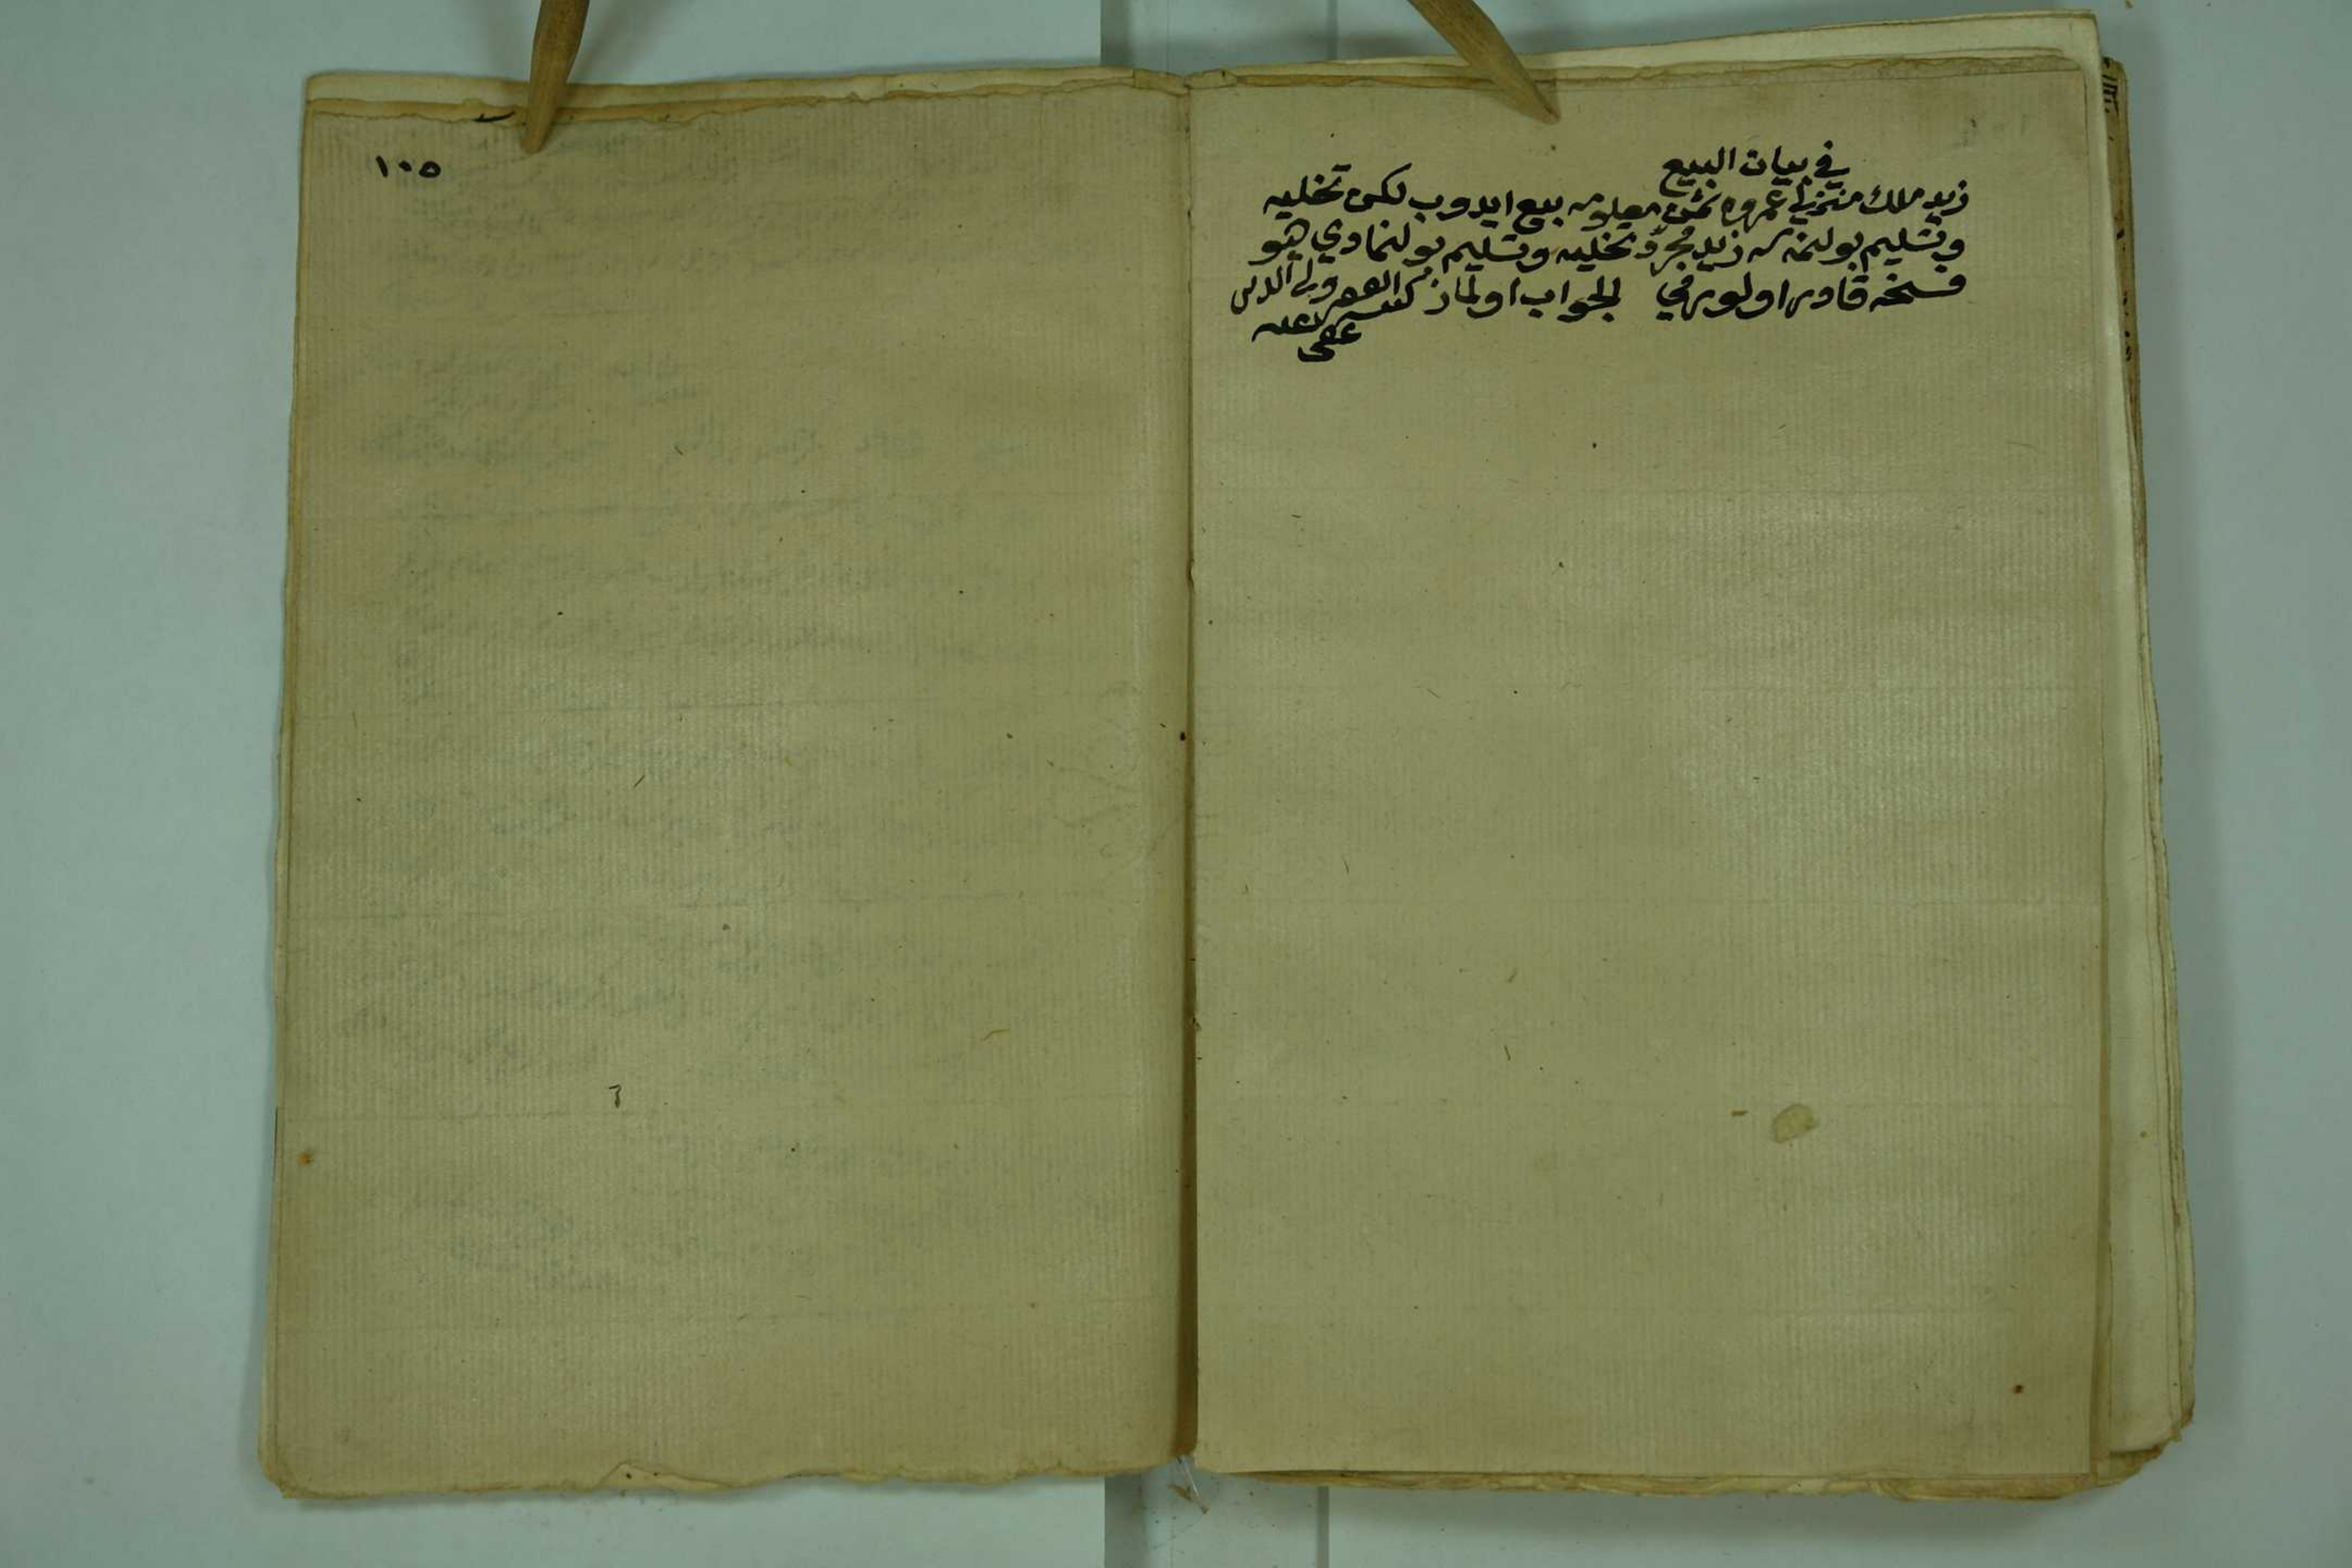 في بيان البيع
زيد ملك منزلني عمروه ثمن معلومه بيع ايدوب لكن تخليه
وتسليم بولنمسه زيد مجرّد تخليه وتسليم بولنمادي ديو
فسخه قادر اولورمي الجواب اولماز كتبه الفقير ولي الدين
عفي عنه
١٠٥